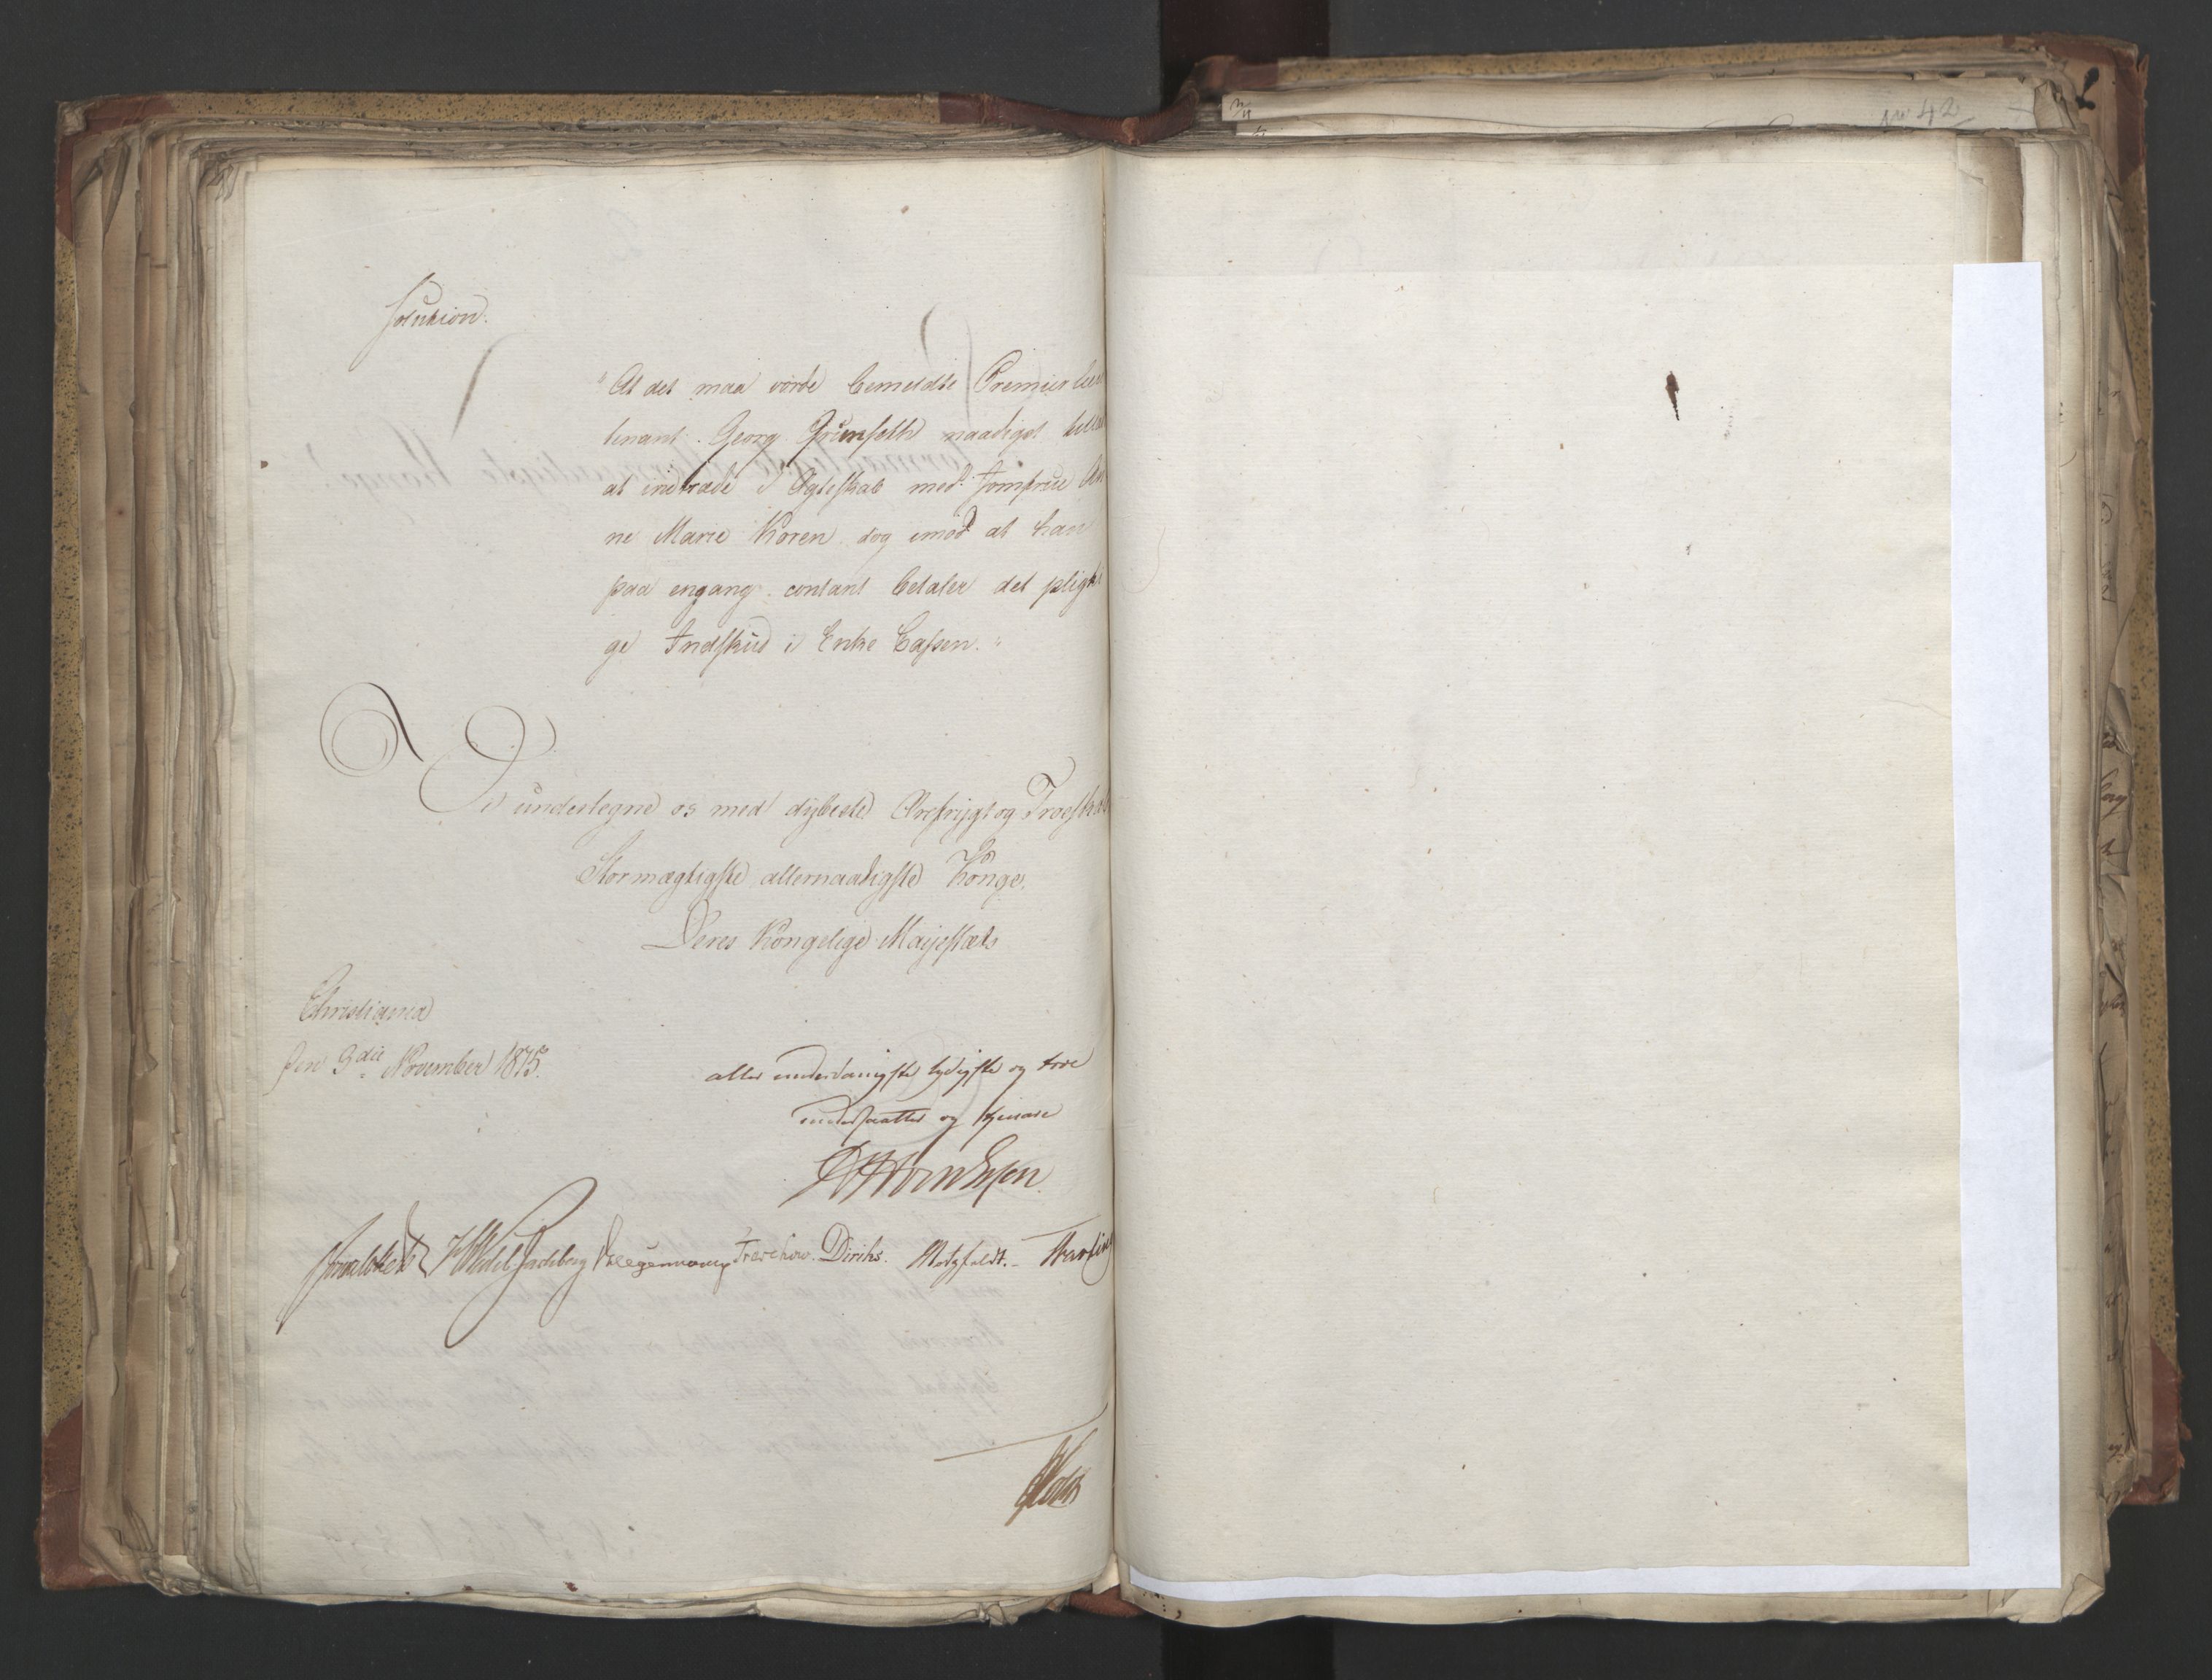 solution.
"At det maa vorde bemeldte Premierlieu
tenant Georg Grimseth naadigst tillad
at indtræde i Ægteskab med Jomfrue An
ne Marie Koren dog imod at han
paa engang contant betaler det pligti
ge Indskud i Enke Cassen."
Vi undertegne os med dybeste Ærefrygt og Troeskab
Stormægtigste allernaadigste Konge,
Deres Kongelige Majestæts
Christiania
den 3die November 1815.
aller underdanigste lydigste og troe
undersaatter og tjenere
Sommerhielm Wedel Jarlsberg Krogh Treschow Diriks. Motzfeldt. Hansteen
Holst
No 42